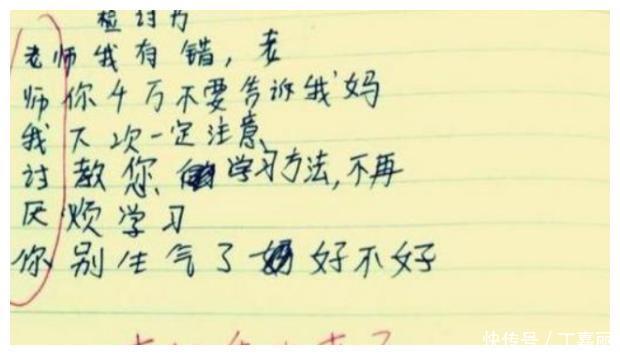 检讨
老师我有错,老
师你千万不要告诉我妈
我下次一定注意
讨教您 学习方法,不再
厌烦学习
你别生气了 好不好
快传号/丁嘉丽